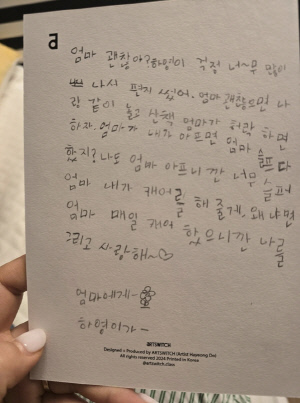 a
엄마 괜찮아? 하영이 걱정 너~무 많이
나서 편지 썼어. 엄마 괜찮으면 나
랑 같이 놀고 산책 엄마가 허락 하면
하자. 엄마가 내가 아프면 엄마 슬프다
했지? 나도 엄마 아프니깐 너무 슬퍼
엄마 내가 캐어를 해 줄게. 왜냐면
엄마 매일 캐어 했으니깐 나를
그리고 사랑해~♡
엄마에게-
하영이가-
ARTSWITCH
Designed + Produced by ARTSWITCH
All rights reserved 2024 Printed in Korea